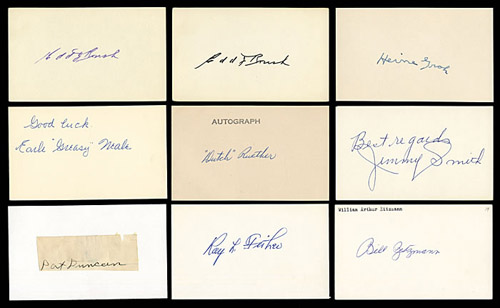 Edd J Roush
Edd J Roush
Heinie Groh
Good luck.
Earle "Greasy" Neale
AUTOGRAPH
"Dutch" Ruether
Best regards
Jimmy Smith
Pat Duncan
Ray L Fisher
William Arthur Zitzmann
Bill Zitzmann